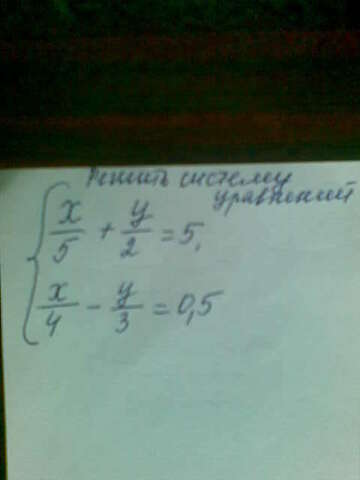 Решить систему
уравнений
x/5 + y/2 = 5,
x/4 - y/3 = 0,5